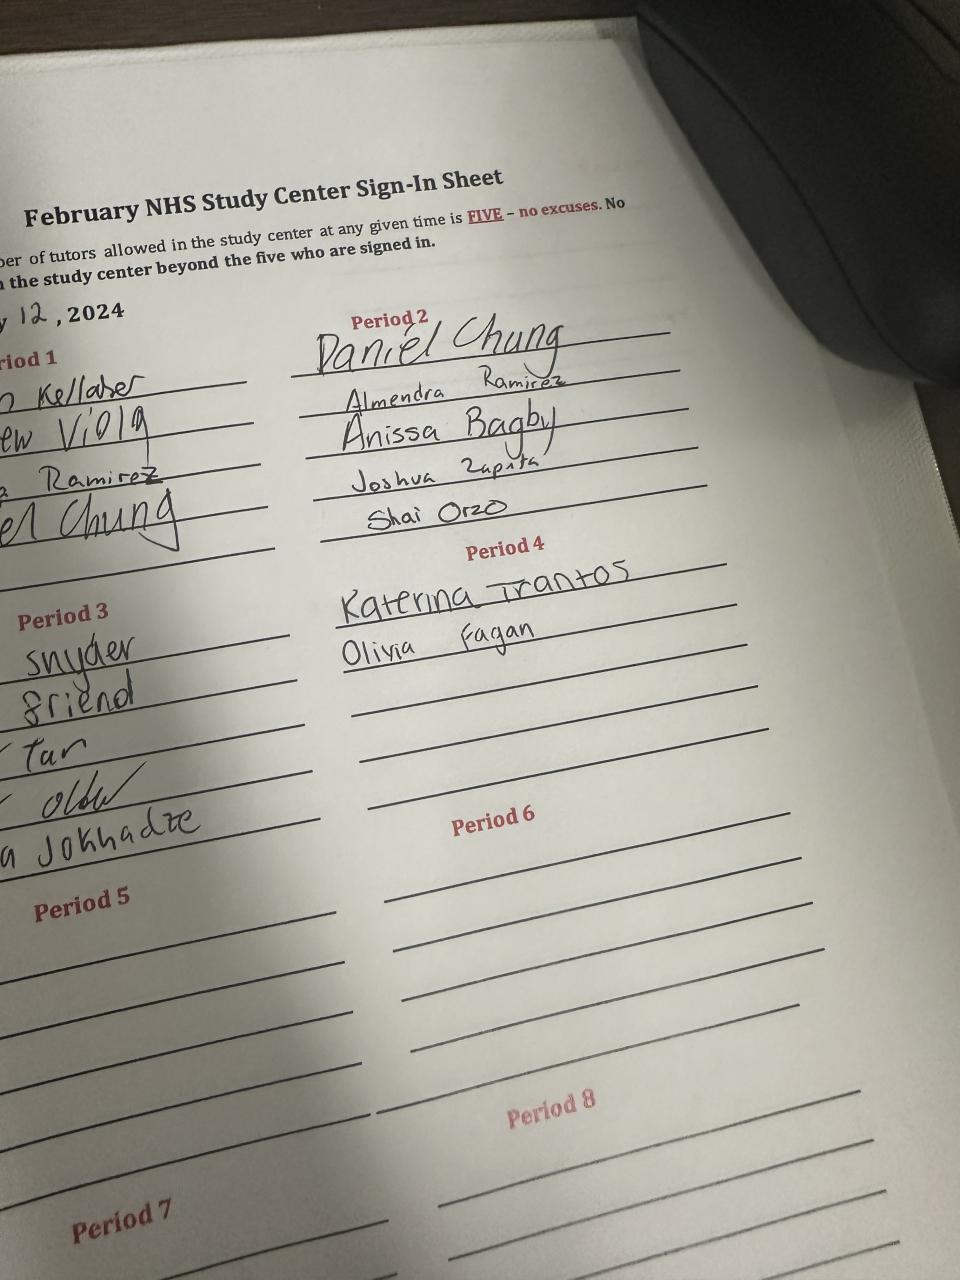 February NHS Study Center Sign-In Sheet
ber of tutors allowed in the study center at any given time is FIVE – no excuses. No
the study center beyond the five who are signed in.
y 12, 2024
riod 1
Kellaher
ew Viola
a Ramirez
el Chung
Period 2
Daniel Chung
Almendra Ramirez
Anissa Bagby
Joshua Zapata
Shai Orzo
Period 3
snyder
friend
Tan
a Jokhadze
Period 4
Katerina Trantos
Olivia Fagan
Period 5
Period 6
Period 7
Period 8